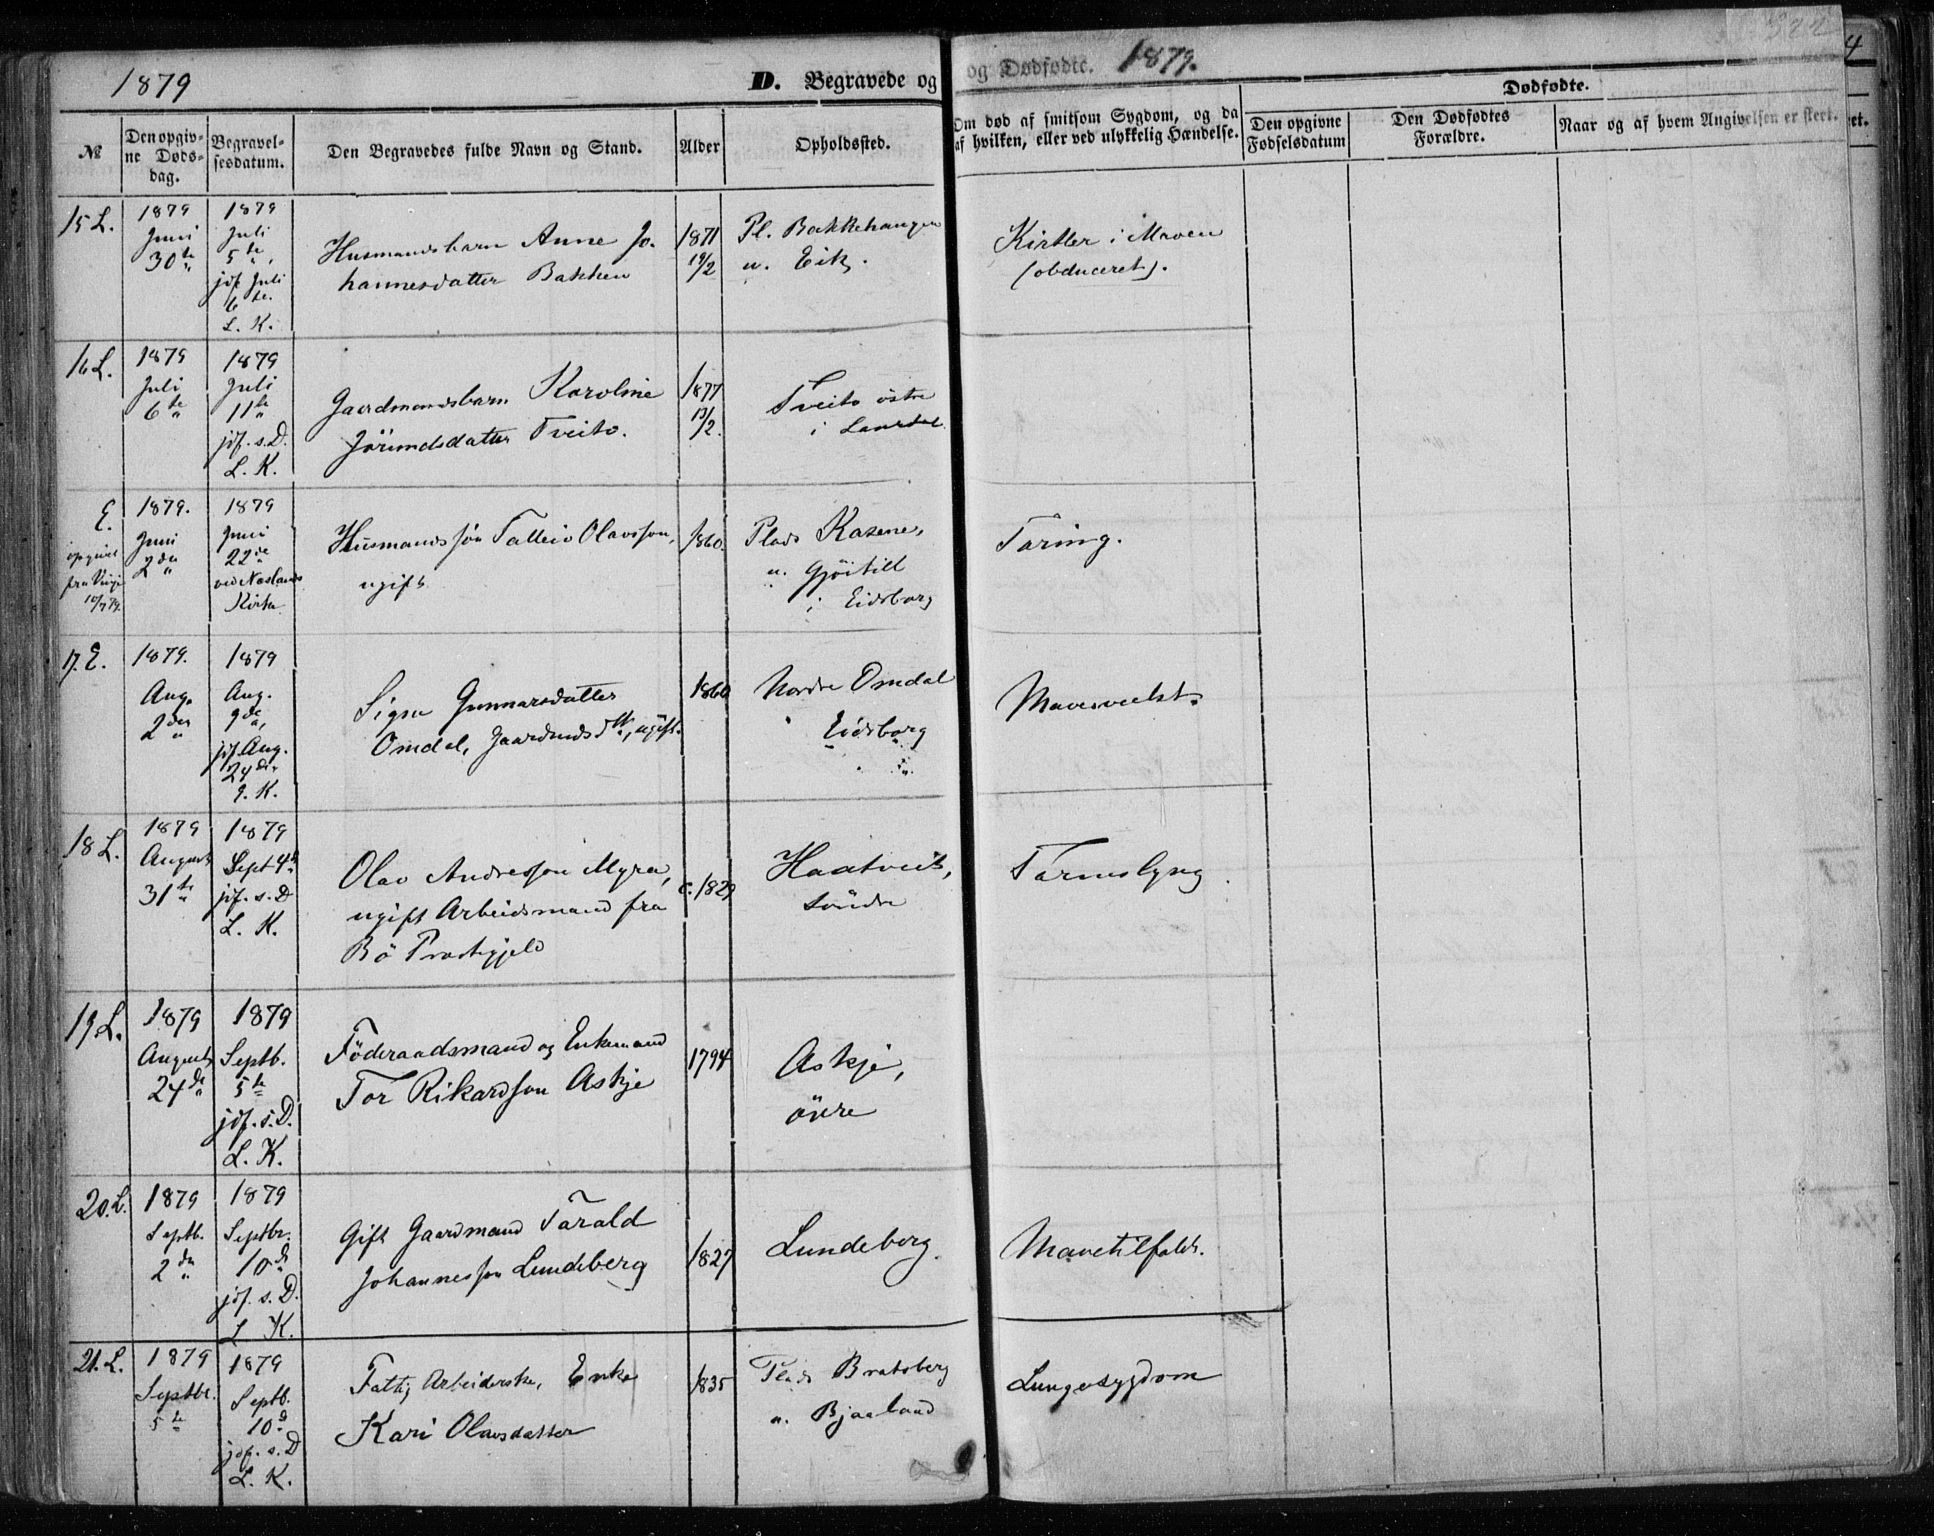 1879
D. Begravede og
og Dødfødte. 1879.
322
4
№
Den opgiv-
ne Døds-
dag.
Begravel-
sesdatum.
Den Begravedes fulde Navn og Stand.
Alder
Opholdssted.
Om død af smitsom Sygdom, og da
af hvilken, eller ved ulykkelig Hændelse.
Dødfødte.
Den opgivne
Fødselsdatum
Den Dødfødtes
Forældre.
Naar og af hvem Angivelsen er skeet.
15 L.
1879
Juni
30te
1879
Juli
5te,
jdf. Juli
6te.
L. K.
Husmandsbarn Anne Jo-
hannesdatter Bakken
1871
19/2
Pl. Bakkehaugen
u. Eik.
Kirtler i Maven
(obduceret).
16 L.
1879
Juli
6te
1879
Juli
11te
jdf. s. D.
L. K.
Gaardmandsbarn Karoline
Jörundsdatter Tveito.
1877
13/2.
Tveito östre
i Laurdal
E.
opgivet
fra Vinje
10/7 79.
1879.
Juni
2den
1879
Juni
22de
ved Neslands
Kirke
Husmandssön Talleiv Olavsson,
ugift
1860.
Plads Kasene,
u. Gjöitill
i Eidsborg
Tæring.
17. E.
1879.
Aug.
2den
1879
Aug.
9de,
jdf. Aug.
24de
E. K.
Signe Gunnarsdatter
Omdal, Gaardmdsdtr, ugift.
1860
Nordre Omdal
i Eidsborg
Maveonelst.
18 L.
1879
August
31te
1879
Sept 4de
jdf. s. D
L. K.
Olav Andresson Myra,
ugift Arbeidsmand fra
Bö Prestegjeld
c. 1829
Haatveit,
söndre
Tarmslyng
19 L.
1879
August
24de
1879
Septb.
5te
jdf. s. D.
L. K.
Föderaadsmand og Enkemand
Tor Rikardson Askje
1794
Askje,
övre
20. L.
1879
Septb.
2den
1879
Septbr.
10de
jdf. s. D.
L. K.
Gift Gaardmand Tarald
Johannesson Lundeberg
1827
Lundeberg.
Mavetilfælde.
21. L.
1879
Septbr.
5te
1879
Septb.
10d
jdf. s. D
L. K.
Fattig Arbeiderske, Enke
Kari Olavsdatter
1835
Plads Bratsberg
u. Bjaaland
Lungesygdom